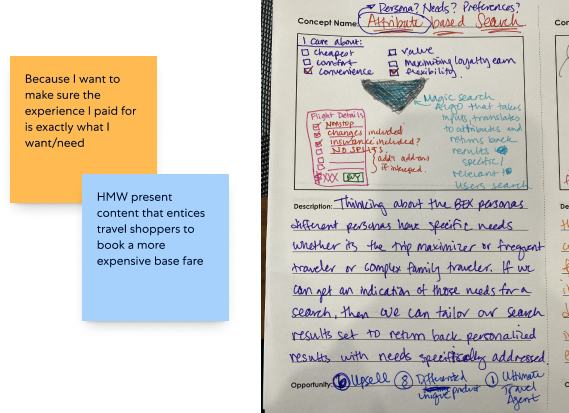 Because I want to
make sure the
experience I paid for
is exactly what I
want/need
HMW present
content that entices
travel shoppers to
book a more
expensive base fare
Persona? Needs? Preferences?
Concept Name: Attribute based Search
I care about:
cheapest
comfort
convenience
value
maximizing loyalty earn
flexibility
Magic search
Algo that takes
inputs, translates
to attributes and
returns back
results
specific/
relevant to
users search
Flight Details
Nonstop
changes included
insurance included?
NO SPLITS
adds add-ons
if interested.
$XXX BUY
Description: Thinking about the BEX personas
different personas have specific needs
whether its the trip maximizer or frequent
traveler or complex family traveler. If we
can get an indication of those needs for a
search, then we can tailor our search
results set to return back personalized
results with needs specifically addressed.
Opportunity: 6 Upsell 8 Differented unique product 1 Ultimate Travel Agent
Con
De